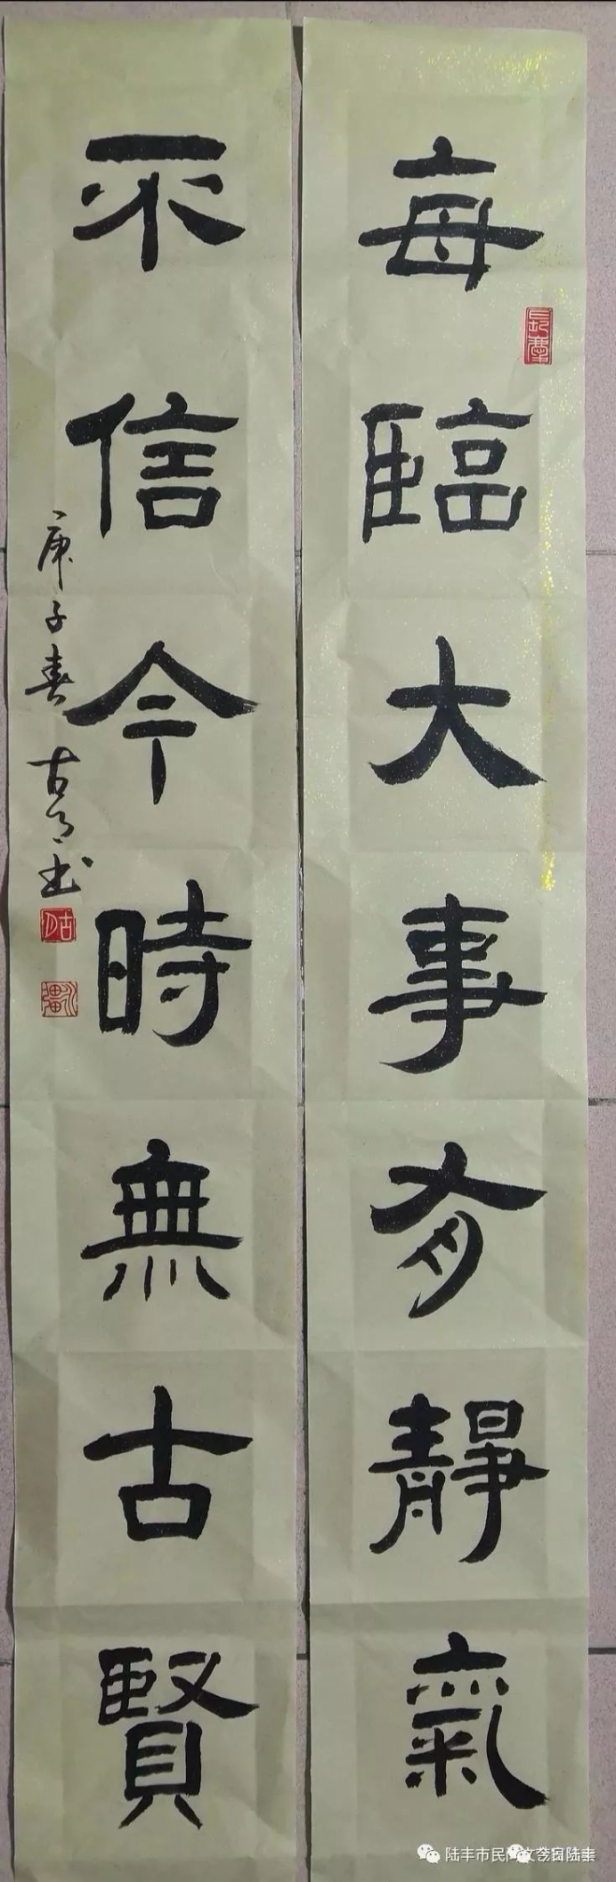 每臨大事有靜氣
不信今時無古賢
庚子春 古月书
陆丰市民间文艺